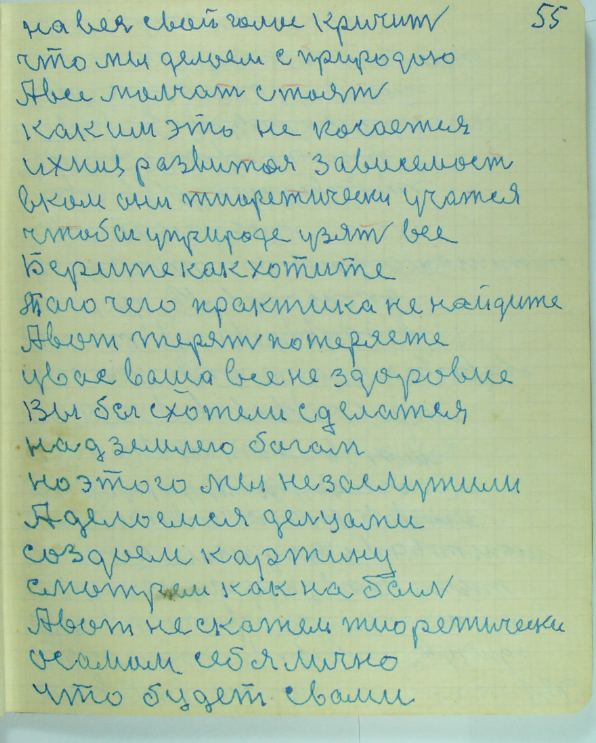 55
на вея свой голос кричит
что мы делоем с природою
А вее молчат стоят
каким это не косается
ихниц развитоя зависемост
вком они тиоретически учатся
чтобы уприроде узят вее
Берите как хотите
Таго чего практика не найдите
Авот терят потеряете
увас ваша все не здоровие
Вы бы схотели сделатся
над землею богом
но этого мы незаслужили
А делоемся делцами
создоем картину
смотрем как на
Авот не скажем тиоретически
осамом себя лично
что будет свами